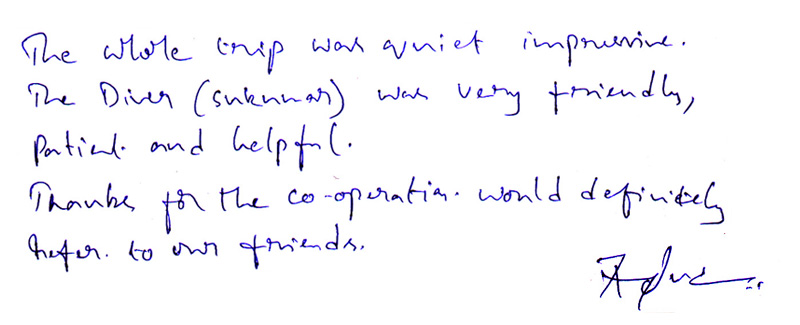 The whole trip was quiet impressive.
The Diver (sukumar) was very friendly,
Patient and helpful.
Thanks for the co-operation. would definitely
refer. to our friends.